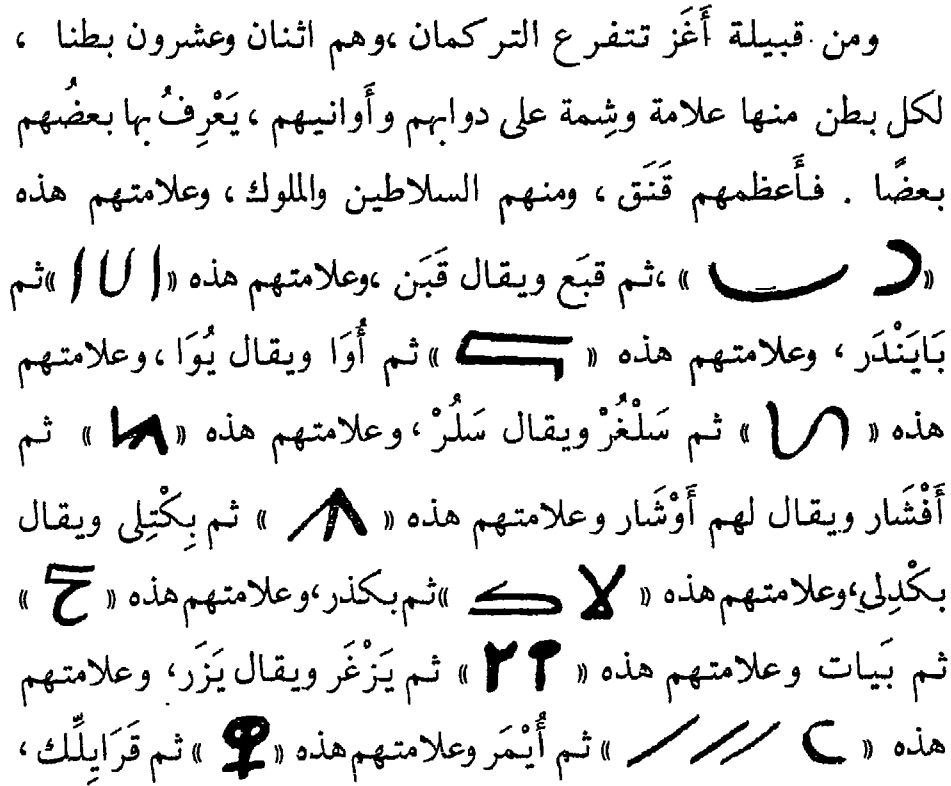 ومن قبيلة أَغَز تتفرع التركمان ،وهم اثنان وعشرون بطنا ،
لكل بطن منها علامة وشِمة على دوابهم وأَوانيهم ، يَعْرِفُ بها بعضُهم
بعضًا . فأَعظمهم قَنَق ، ومنهم السلاطين والملوك ، وعلامتهم هذه
« » ،ثم قبَع ويقال قَبَن ،وعلامتهم هذه « » ثم
بَايَنْدَر ، وعلامتهم هذه « » ثم أُوَا ويقال يُوَا ، وعلامتهم
هذه « » ثم سَلْغُرْ ويقال سَلُرْ ، وعلامتهم هذه « » ثم
أَفْشَار ويقال لهم أَوْشَار وعلامتهم هذه « » ثم بِكْتِلى ويقال
بكْدِلى ،وعلامتهم هذه « » ثم بكدز ،وعلامتهم هذه « »
ثم بَيات وعلامتهم هذه « » ثم يَزْغَر ويقال يَزَر ، وعلامتهم
هذه « » ثم أُيْمَر وعلامتهم هذه « » ثم قَرَابِلُك ،